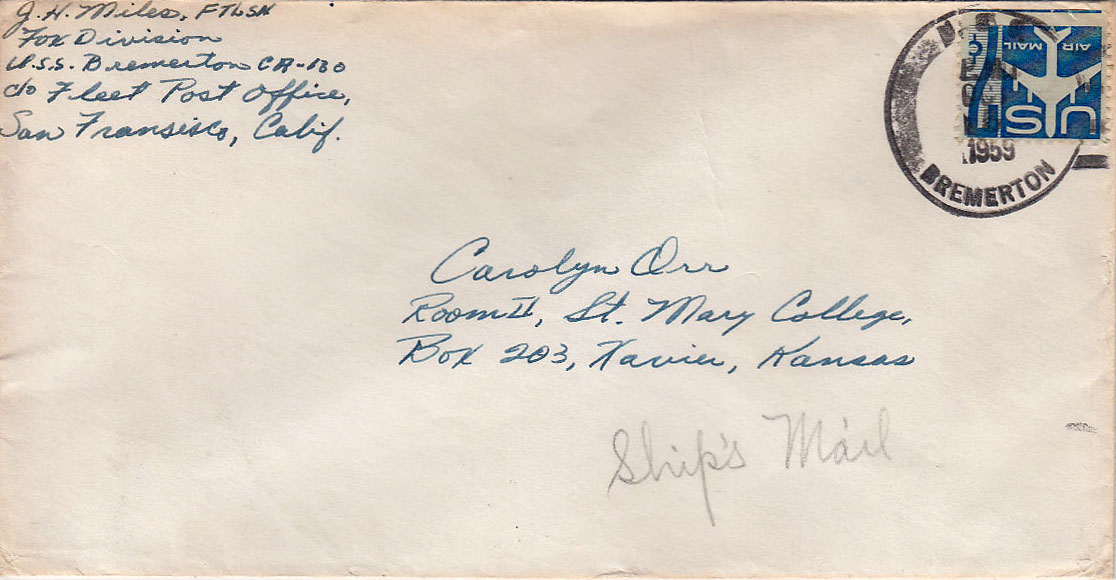 J. H. Miles, FTLSN
Fox Division
U.S.S. Bremerton CA-130
c/o Fleet Post Office,
San Fransisco, Calif.
U.S.S.
1959
BREMERTON
AIR MAIL
7¢
US
Carolyn Orr
Room II, St. Mary College,
Box 203, Xavier, Kansas
Ship's Mail